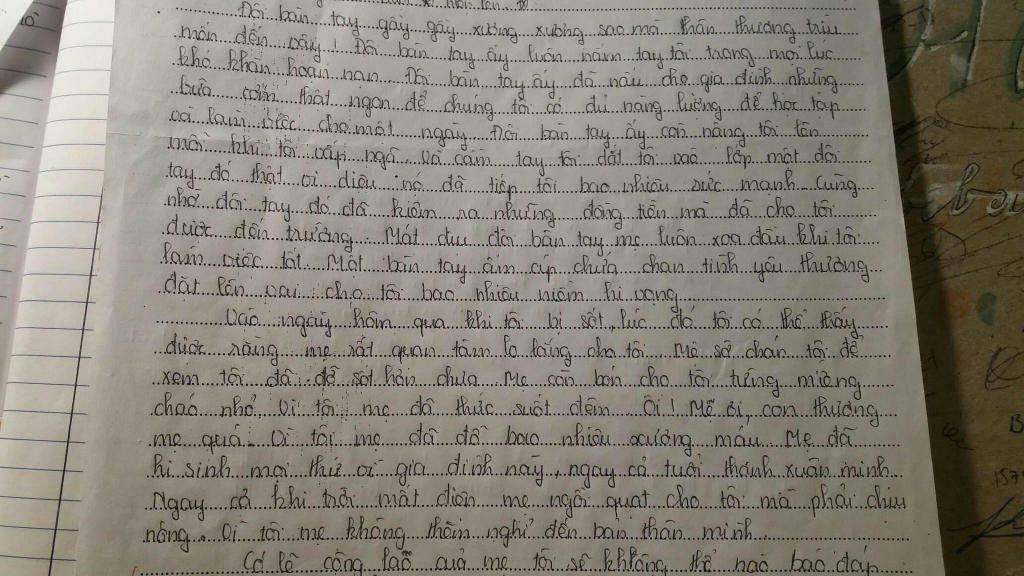 Đôi bàn tay gầy gầy xương xương sao mà thân thương trìu
mến đến vậy! Đôi bàn tay ấy luôn nắm tay tôi trong mọi lúc
khó khăn hoạn nạn. Đôi bàn tay ấy đã nấu cho gia đình những
bữa cơm thật ngon để chúng tôi có đủ năng lượng để học tập
và làm việc cho một ngày. Đôi bàn tay ấy còn nâng tôi lên
mỗi khi tôi vấp ngã. Và cầm tay tôi dắt tôi vào lớp một đôi
tay đó thật vi diệu nó đã tiếp tôi bao nhiêu sức mạnh. Cũng
nhờ đôi tay đó đã kiếm ra những đồng tiền mà đã cho tôi
được đến trường. Mát dịu đôi bàn tay mẹ luôn xoa đầu khi tôi
làm việc tốt. Một bàn tay ấm cúp chứa chan tình yêu thương
đặt lên vai cho tôi bao nhiêu niềm hi vọng
Vào ngày hôm qua khi tôi bị sốt, lúc đó tôi có thể thấy
được rằng mẹ rất quan tâm lo lắng cho tôi. Mẹ sờ chán tôi để
xem tôi đã đỡ sốt hẳn chưa. Mẹ còn bón cho tôi từng miếng
cháo nhỏ. Vì tôi mẹ đã thức suốt đêm. Ôi! Mẹ ơi, con thương
mẹ quá. Vì tôi mẹ đã đổ bao nhiêu xương máu. Mẹ đã
hi sinh mọi thứ vì gia đình này, ngay cả tuổi thanh xuân mình
Ngay cả khi trời mất điện mẹ ngồi quạt cho tôi mà phải chịu
nóng. Vì tôi mẹ không thèm nghỉ đến bản thân mình
Có lẽ công lao của mẹ tôi sẽ không thể nào báo đáp